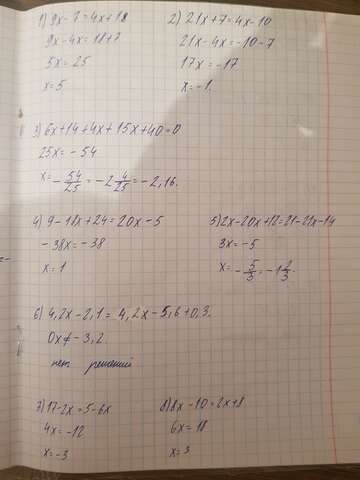 1) 9x-7=4x+18
9x-4x=18+7
5x=25
x=5
2) 21x+7=4x-10
21x-4x=-10-7
17x=-17
x=-1.
3) 6x+14+4x+15x+40=0
25x=-54
x=-54/25=-2 4/25=-2,16.
4) 9-18x+24=20x-5
-38x=-38
x=1
5) 2x-20x+12=21-21x-14
3x=-5
x=-5/3=-1 2/3.
6) 4,2x-2,1=4,2x-5,6+0,3.
0x≠-3,2.
нет решений
7) 17-2x=5-6x
4x=-12
x=-3
8) 8x-10=2x+8
6x=18
x=3